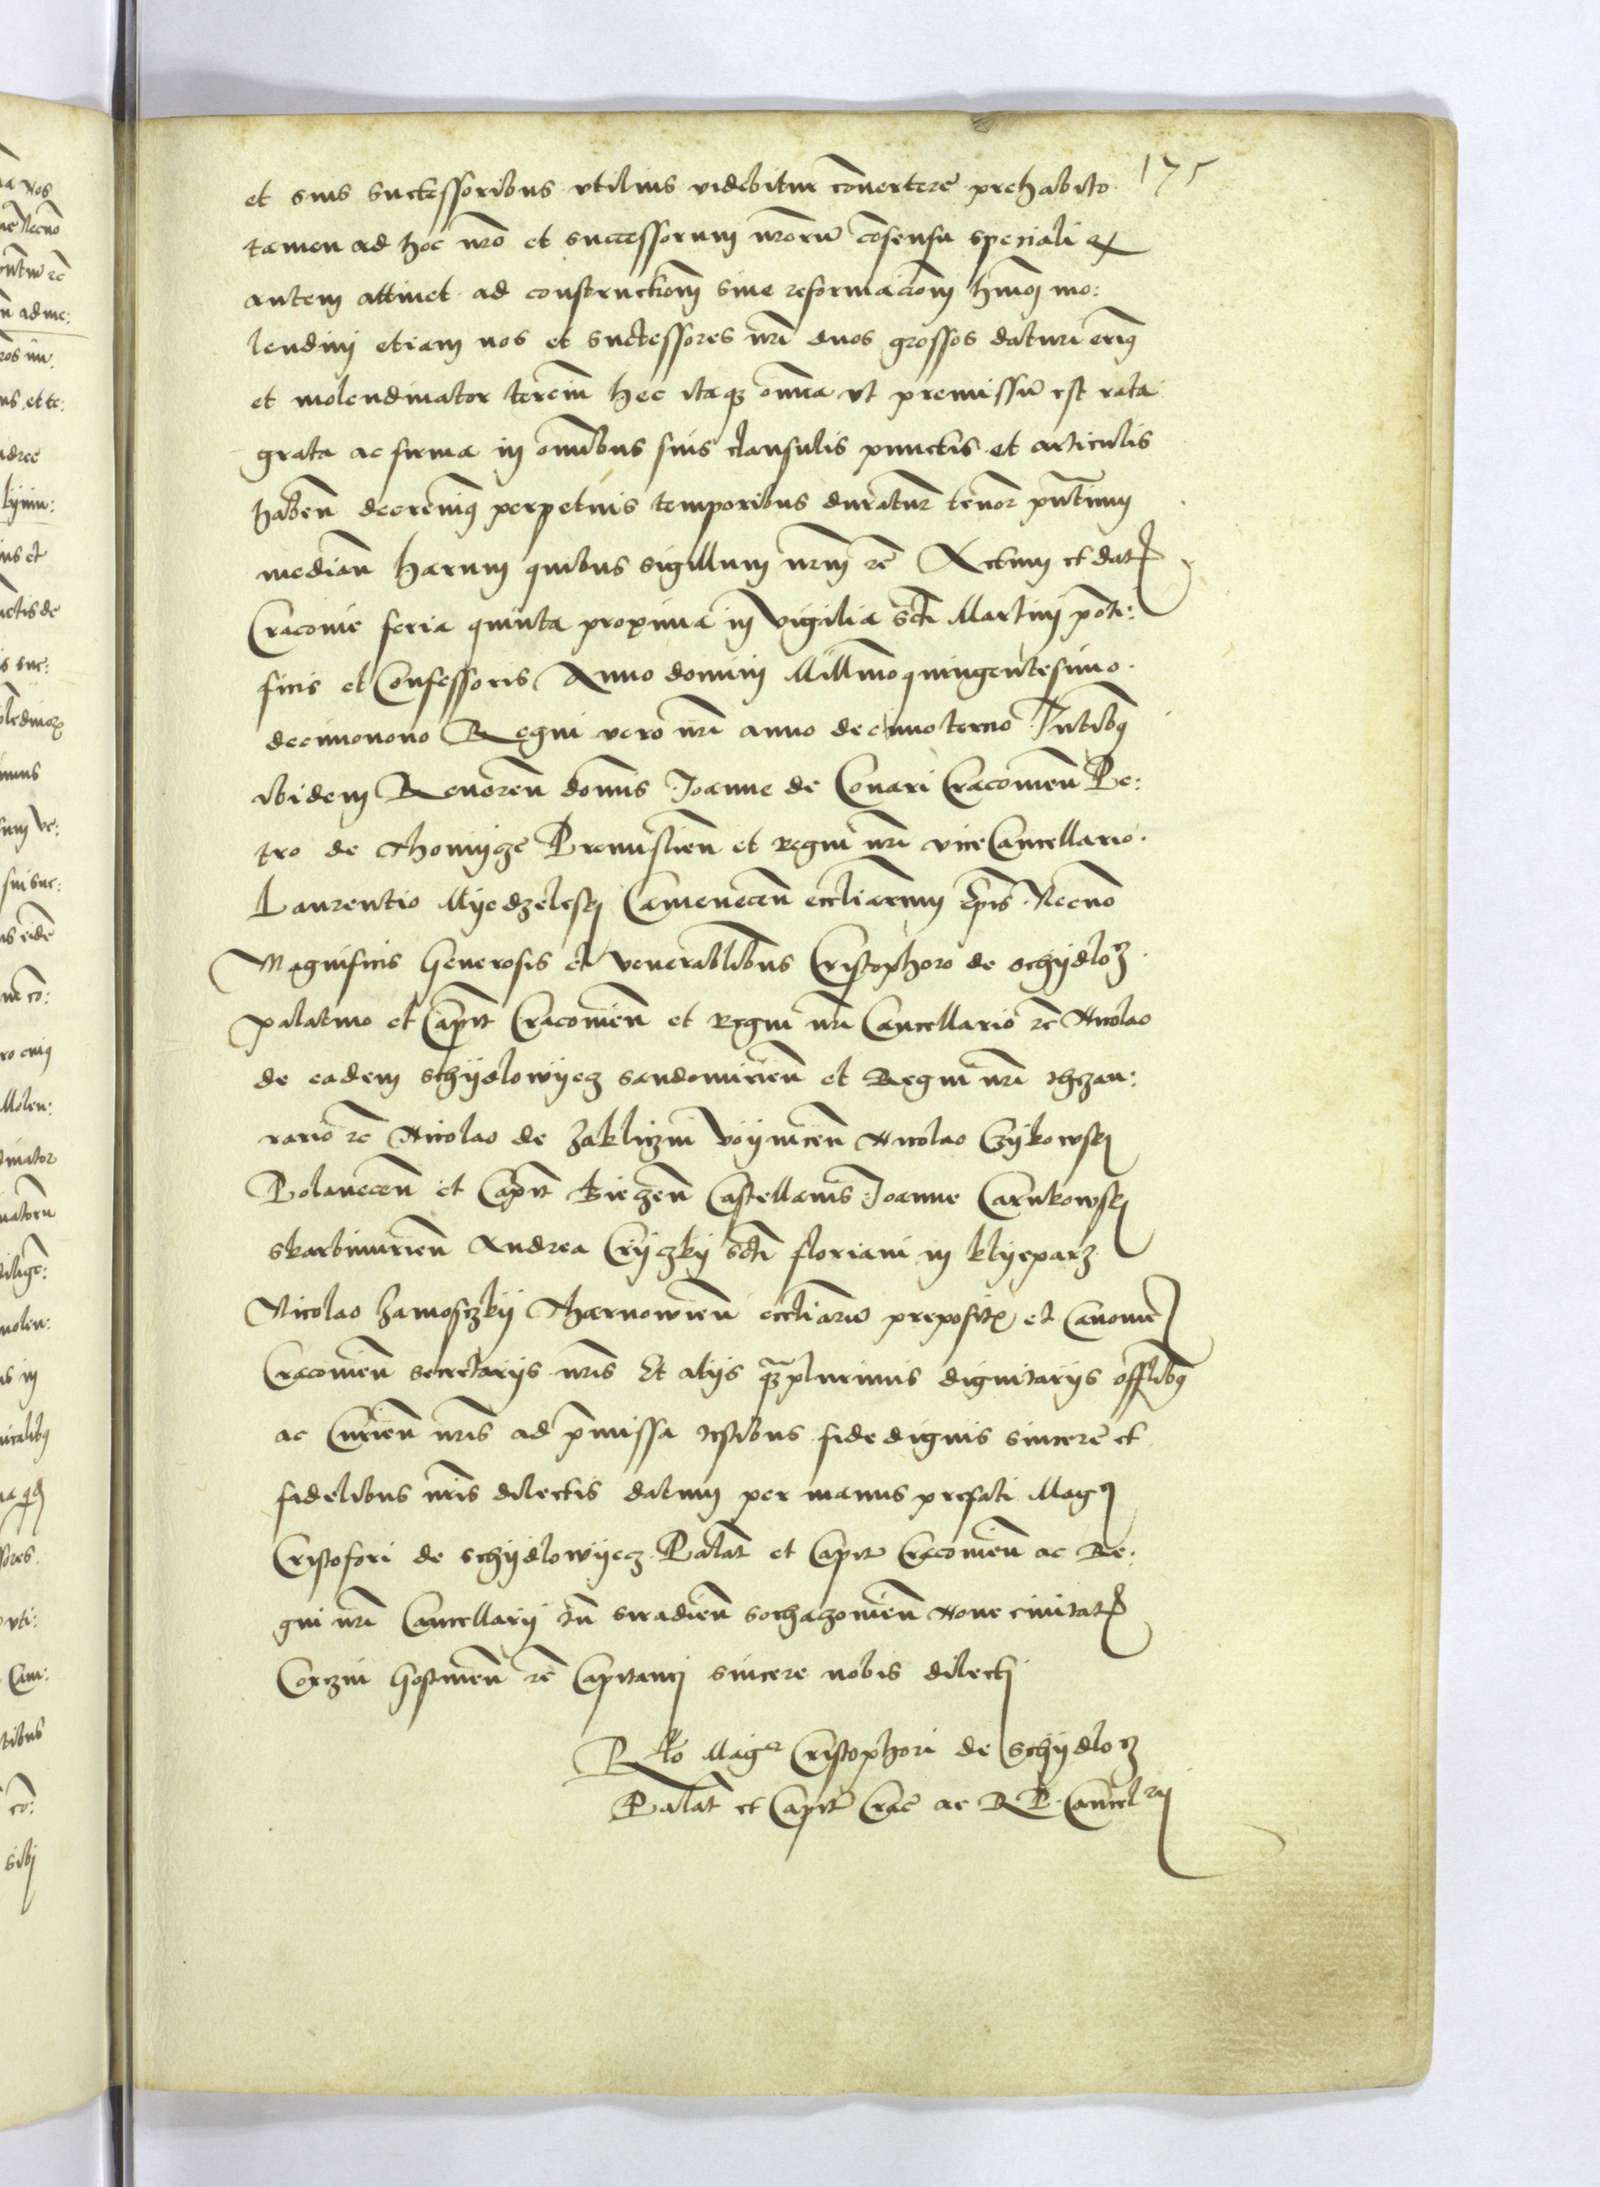 175
et suis successoribus vtilius videbitur cōuertere prehabito
tamen ad hoc nr̄o et successorum nr̄orū cōsensu speciali
autem attinet ad constructiōem siue reformaciōem hm̄oi mo:
lendini etiam nos et successores nr̄i duos grossos daturi erim9
et molendinator terciū hec itaq3 om̄ia vt premissū est rata
grata ac firma in om̄ibus suis clausulis punctis et articulis
haben̄ decernim9 perpetuis temporibus duratur tenor pn̄tium
median̄ harum quibus sigillum nr̄m rē Actum et dat
Cracouie feria quinta proxima in vigilia scti Martini pōti:
ficis et Confessoris Anno domini Millmoquingentesimo
decimonono Regni vero nr̄i anno decimoterno Pn̄tibq
ibidem Reueren̄ dom̄is Joanne de Conari Cracouien̄ Pe:
tro de Thomyczē Premislien̄ et regni nr̄i viceCancellario
Laurentio Myedzeleski Camenecen̄ eccliarum ep̄is Necnō
Magnificis Generosis et venerabilibus Cristophoro de schydlo3
palatino et Capit Cracouien̄ et regni nr̄i Cancellario rē Nicolao
de eadem schydlowyecz sandomirien̄ et Regni nr̄i thezau:
rario rē Nicolao de zakliczin voynicen̄ Nicolao Czykowski
Polanecen̄ et Capit biezen̄ Castellanis Joanne Carnkowski
skarbimirien̄ Andrea Cryczky scti floriani in klyeparz
Nicolao zamosczky Tharnowien̄ eccliarū preposit et Canonic
Cracouien̄ secretarijs nr̄is Et alijs q3plurimis dignitarijs offlibq
ac Curien̄ nr̄is ad p̄missa testibus fidedignis sincere et
fidelibus nr̄is dilectis datum per manus prefati Mag
Cristofori de schydlowyecz Palat et Capit Cracouien̄ ac Re:
gni nr̄i Cancellarij siradien̄ sochaczouien̄ Noue ciuitat
Corczin Gostinen̄ rē Capitanei sincere nobis dilecti
Rlō Magci Cristophori de schydlo3
Palat et Capit Crac ac R P Cancelrij